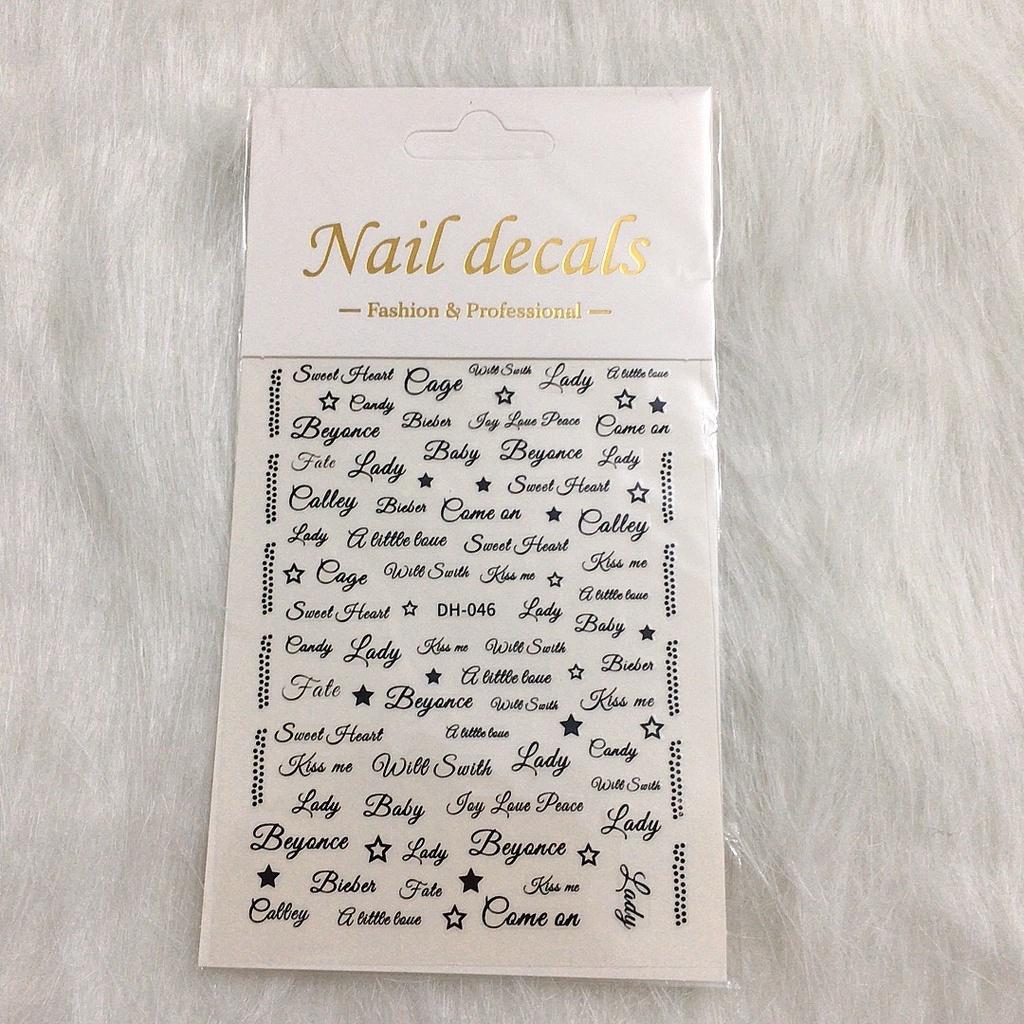 Nail decals
— Fashion & Professional —
Sweet Heart Cage Will Swith Lady A little loue
Candy
Beyonce Bieber Joy Loue Peace Come on
Fate Lady Baby Beyonce Lady
Sweet Heart
Calley Bieber Come on Calley
Lady A little loue Sweet Heart
Kiss me
Cage Will Swith Kiss me
A little loue
Sweet Heart DH-046 Lady
Baby
Candy Lady Kiss me Will Swith
Bieber
Fate Beyonce A little loue
Will Swith Kiss me
Sweet Heart A little loue
Candy
Kiss me Will Swith Lady
Will Swith
Lady Baby Joy Loue Peace
Lady
Beyonce Lady Beyonce
Bieber Fate Kiss me Lady
Calley A little loue Come on